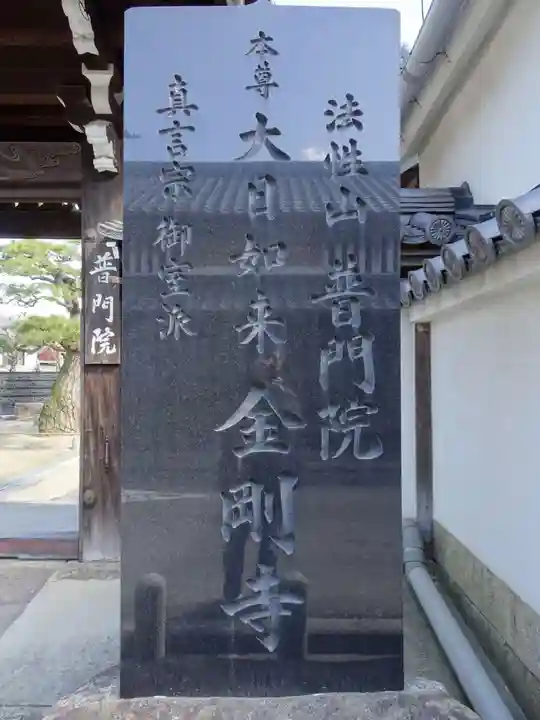 法性山 普門院
本尊 大日如来 金剛寺
真言宗御室派
普門院